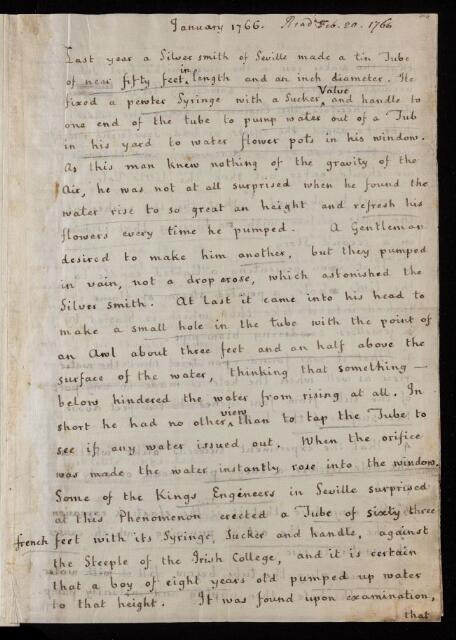 January 1766. Read Feb. 20. 1766
Last year a Silver smith of Seville made a tin Tube
of near fifty feet in length and an inch diameter. He
fixed a pewter Syringe with a Sucker, Valve and handle to
one end of the tube to pump water out of a Tub
in his yard to water flower pots in his window.
As this man knew nothing of the gravity of the
Air, he was not at all surprised when he found the
water rise to so great an height and refresh his
flowers every time he pumped. A Gentleman
desired to make him another, but they pumped
in vain, not a drop arose, which astonished the
Silver smith. At last it came into his head to
make a small hole in the tube with the point of
an Awl about three feet and an half above the
surface of the water, thinking that something —
below hindered the water from rising at all. In
short he had no other view than to tap the Tube to
see if any water issued out. When the orifice
was made the water instantly rose into the window.
Some of the Kings Engineers in Seville surprised
at this Phenomenon erected a Tube of sixty three
french feet with its Syringe, Sucker and handle, against
the Steeple of the Irish College, and it is certain
that a boy of eight years old pumped up water
to that height. It was found upon examination,
that